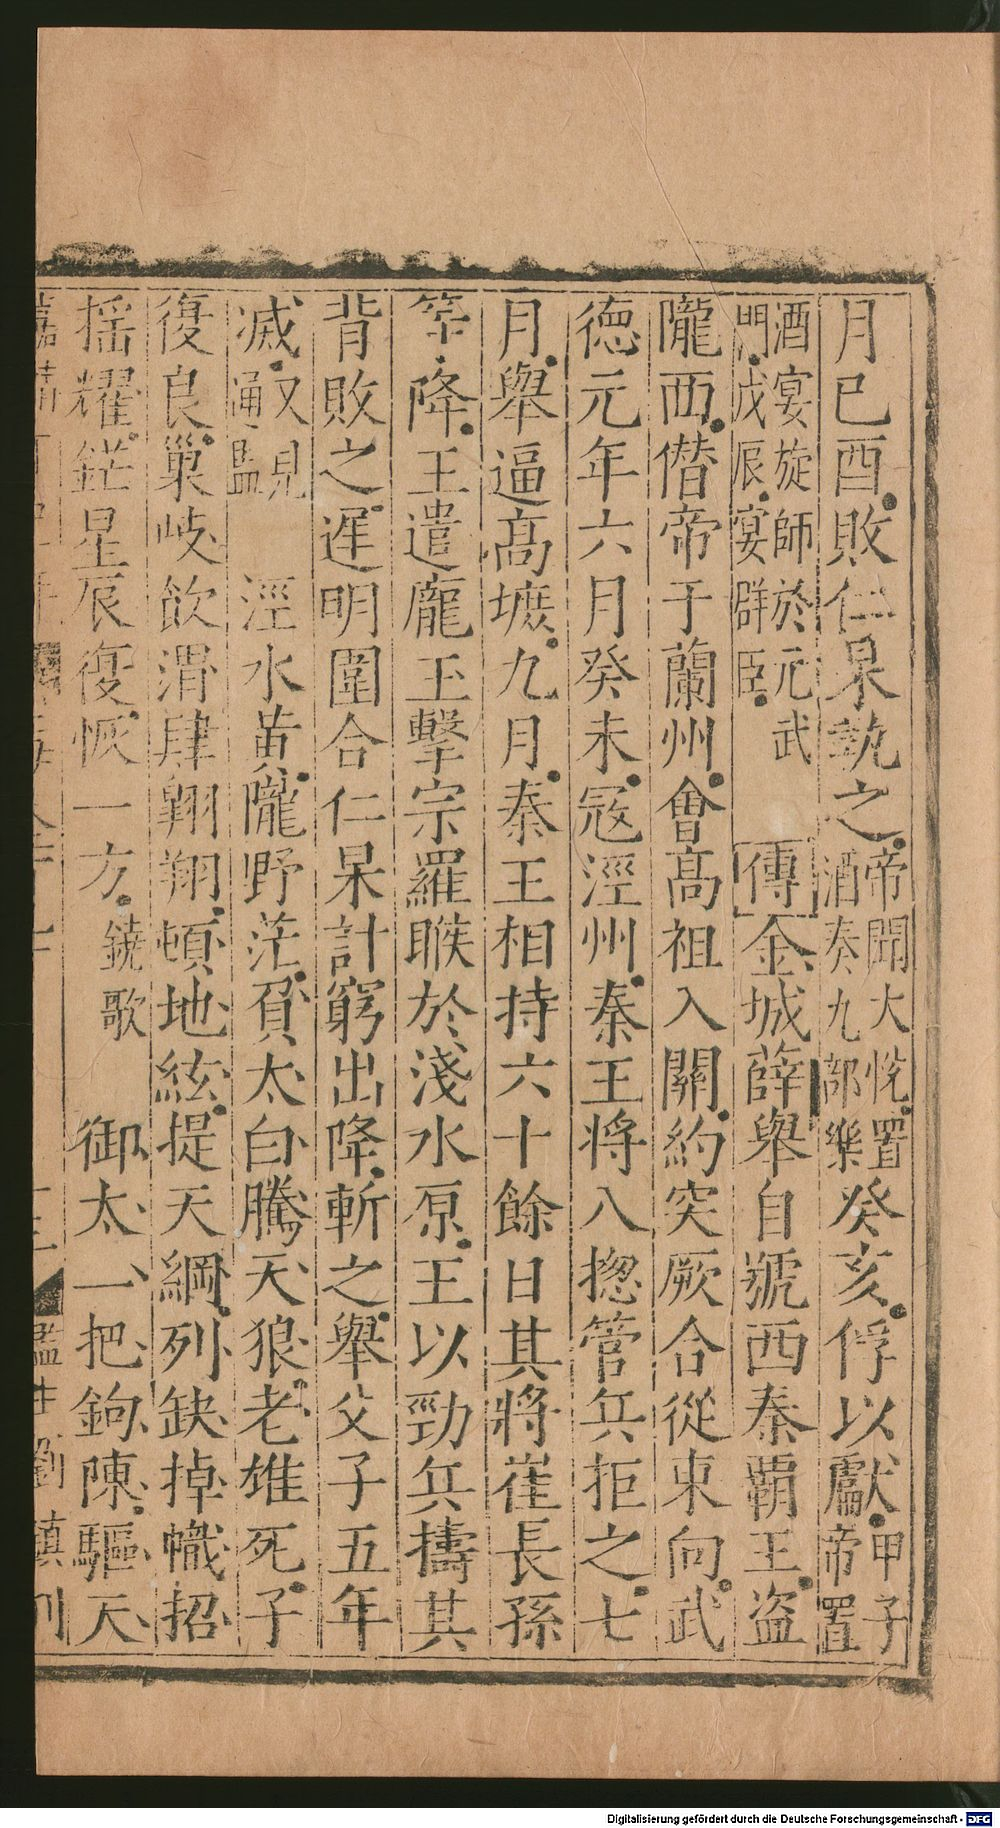 月已酉敗仁杲執之帝聞大悦置酒奏九部樂癸亥俘以獻甲子帝置
酒宴旋師於元武門戊辰宴群臣傳金城薛舉自號西秦覇王盗
隴西僣帝于蘭州會髙祖入關約突厥合從東向武
徳元年六月癸未宼涇州秦王将八揔管兵拒之七
月舉逼髙墌九月秦王相持六十餘日其將崔長孫
等降王遣龐玉擊宗羅睺於淺水原王以勁兵擣其
背敗之遲明圍合仁杲計窮出降斬之舉父子五年
滅又見通監涇水黄隴野茫貟太白騰天狼老雄死子
復良巢岐飲渭肆翱翔頓地紘提天綱列缺掉幟招
揺耀鋩星辰復恢一方鐃歌御太一把鉤陳驅天
Digitalisierung gefördert durch die Deutsche Forschungsgemeinschaft - DFG